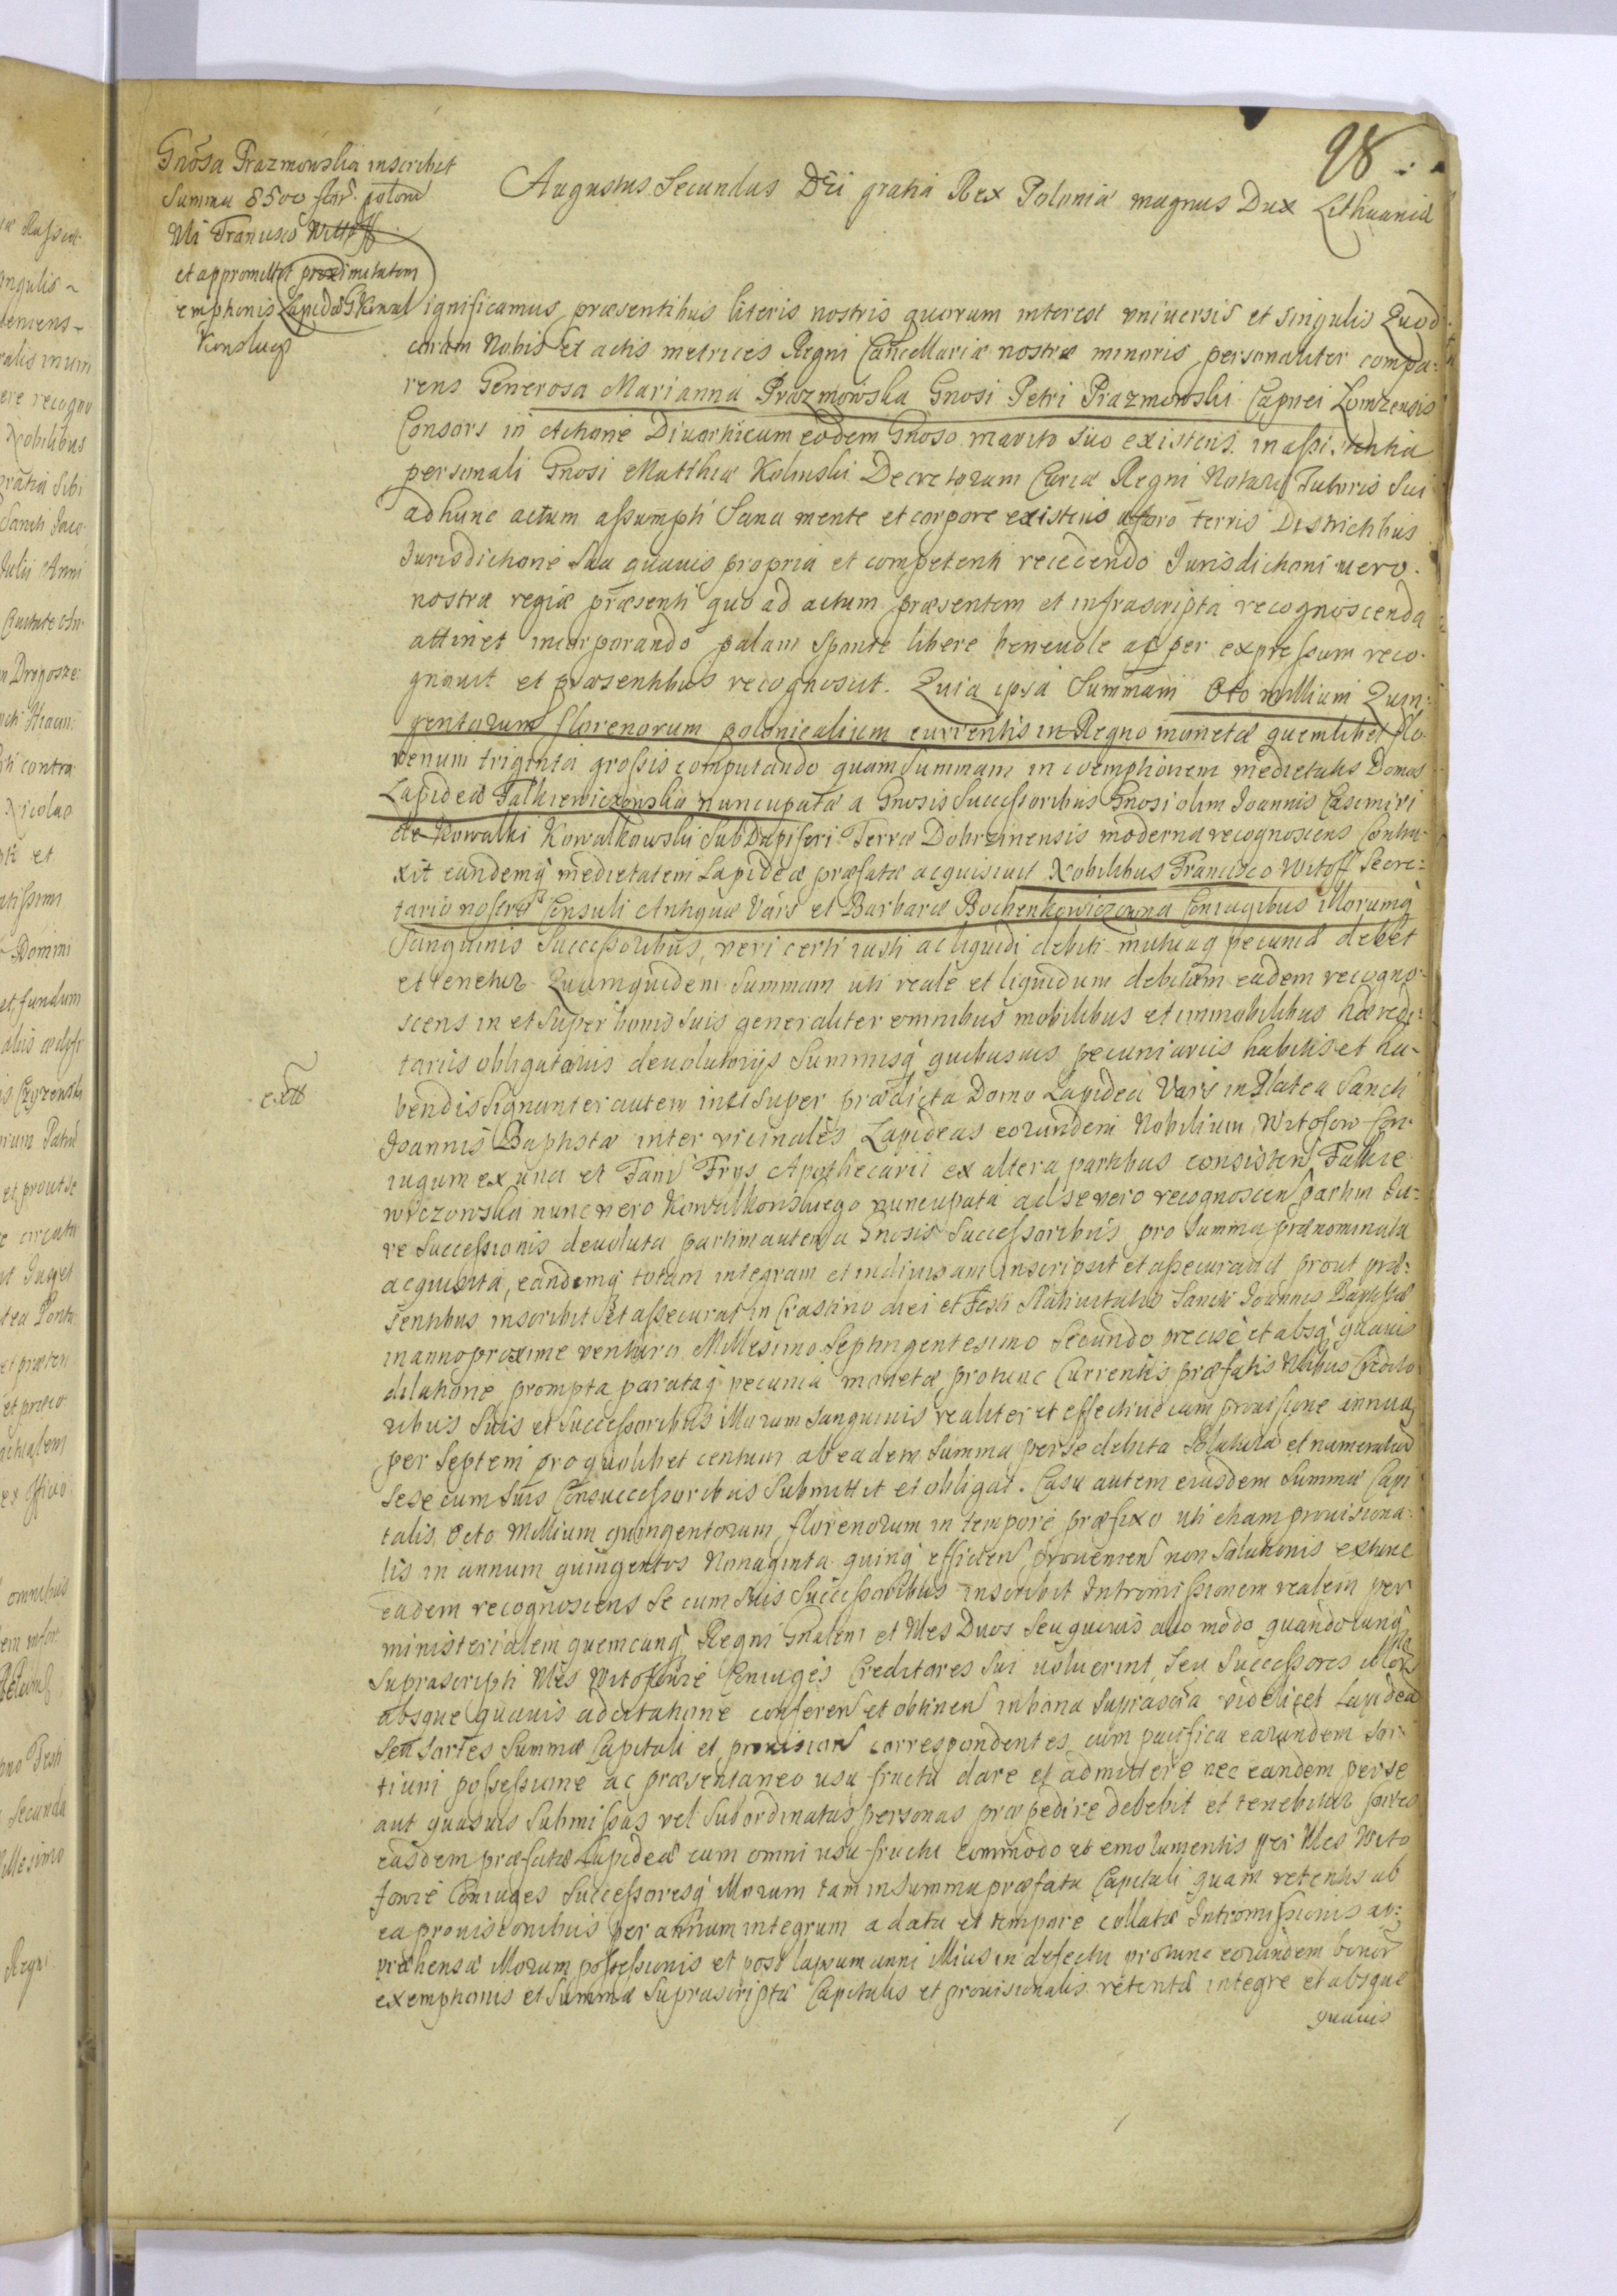 98
Gnosa Prazmowska inscribit
Summa 8500 flor. polon
Nli Francisco Wittoff
et appromittit proximitatem
emptionis Lapideæ G Kowal
Konsluego
Augustus Secundus Dei gratia Rex Poloniæ magnus Dux Lithuaniæ
ignificamus præsentibus literis nostris quorum interest vniuersis et singulis Quod
coram Nobis et actis metrices Regni Cancellariæ nostræ minoris personaliter compa-
rens Generosa Marianna Prazmowska Gnosi Petri Prazmowski Capnei Lomzensis
Consors in Actione Diuortii cum eodem Gnoso marito suo existens in assistentia
personali Gnosi Matthiæ Kolinski Decretorum Curiæ Regni Notarij Tutoris sui
ad hunc actum assumpti Sana mente et corpore existens a foro terris Districtibus
Jurisdictione sua quauis propria et competenti recedendo Jurisdictioni vero
nostræ regiæ præsenti quo ad actum præsentem et infrascripta recognoscenda
attinet incorporando palam sponte libere beneuole ac per expressum reco-
gnouit et præsentibus recognoscit. Quia ipsa Summam Octo millium Quin-
gentorum florenorum polonicalium currentis in Regno monetæ quemlibet flo-
renum triginta grossis computando quam summam in coemptionem medietatis Domus
Lapideæ Falkiewiczowska nuncupatæ a Gnosis Successoribus Gnosi olim Joannis Casimiri
de Kowalki Kowalkowski SubDapiferi Terræ Dobrzinensis moderna recognoscens contra-
xit eandemq medietatem Lapideæ præfatæ acquisiuit Nobilibus Francisco Witoff Secre-
tario nostro Consuli Antiquæ Vars et Barbaræ Bochenkowiczowna Coniugibus illorumq
Sanguinis Successoribus, veri certi iusti ac liquidi debiti mutuæq pecuniæ debet
et tenetur Quamquidem Summam uti reale et liquidum debitum eadem recogno-
scens in et super bonis suis generaliter omnibus mobilibus et immobilibus hæredi-
tariis obligatoriis deuolutorijs Summisq quibusuis pecuniariis habitis et ha-
bendis signanter autem in et super prædicta Domo Lapidea Vars in Platea Sancti
Joannis Baptistæ inter vicinales Lapideas eorundem Nobilium Witofow Con-
iugum ex una et Fam Frys Apothecarii ex altera partibus consisten Falkie
wiczowska nunc vero Kowalkowskiego nuncupata ad se vero recognoscen partim Ju-
re Successionis deuoluta partim autem a Gnosis Successoribus pro Summa prænominata
acquisita, eandemq totam integram et indiuisam inscripsit et assecurauit prout præ-
sentibus inscribit et assecurat in Crastino diei et Festi Natiuitatis Sancti Joannis Baptistæ
in anno proxime venturo Millesimo Septingentesimo Secundo precise et absq quauis
dilatione prompta parataq pecunia monetæ protunc Currentis præfatis Nlibus Credito
ribus suis et Successoribus illorum sanguinis realiter et effectiue cum prouisione annua
per Septem pro quolibet centum ab eadem Summa per se debita Solutura et numeratura
sese cum suis Consuccessoribus Submittit et obligat. Casu autem eiusdem Summæ Capi
talis Octo Millium quingentorum florenorum in tempore præfixo uti etiam prouisiona-
lis in annum quingentos Nonaginta quinq efficien prouenien non Solutionis extunc
eadem recognoscens se cum suis Successoribus inscribit Intromissionem realem per
ministerialem quemcunq Regni Gnalem et Nles Duos seu quouis alio modo quandocunq
suprascripti Nles Witofowie Coniuges Creditores sui voluerint seu Successores illor
absque quauis adcitatione conferen et obtinen in bona suprascta videlicet Lapidea
seu sortes Summæ Capitali et prouision correspondentes cum pacifica earundem sor-
tium possessione ac præsentaneo usu fructu dare et admittere nec eandem per se
aut quasuis submissas vel subordinatas personas præpedire debebit et tenebitur sortes
easdem præfatæ Lapideæ cum omni usu fructu commodo et emolumentis ipsi Nles Wito
fowie Coniuges Successoresq illorum tam in summa præfata Capitali quam retentis ab
ea prouisionibus per annum integrum a data et tempore collatæ Intromissionis ap-
præhensæ illorum possessionis et post lapsum anni illius in defectu protunc eorundem bonor
exemptionis et Summæ suprascriptæ Capitalis et prouisionalis retentæ integre et absque
quauis